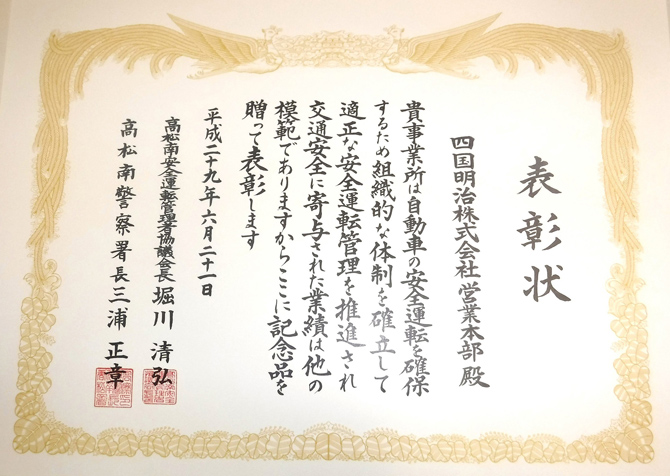 表彰状
四国明治株式会社 営業本部 殿
貴事業所は自動車の安全運転を確保
するため組織的な体制を確立して
適正な安全運転管理を推進され
交通安全に寄与された業績は他の
模範でありますからここに記念品を
贈って表彰します
平成二十九年六月二十一日
高松南安全運転管理者協議会長 堀川 清弘
高松南警察署長 三浦 正章